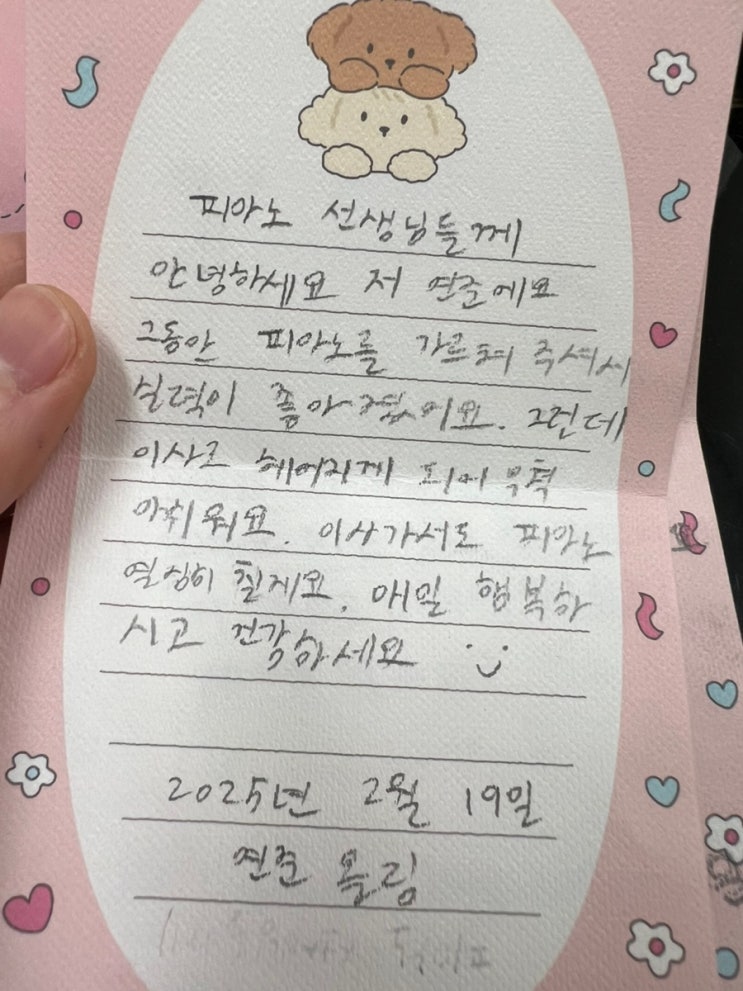 피아노 선생님들께
안녕하세요 저 연준에요
그동안 피아노를 가르쳐 주셔서
실력이 좋아졌어요. 그런데
이사로 헤어지게 되어 무척
아쉬워요. 이사가서도 피아노
열심히 칠게요. 매일 행복하
시고 건강하세요
2025년 2월 19일
연준 올림